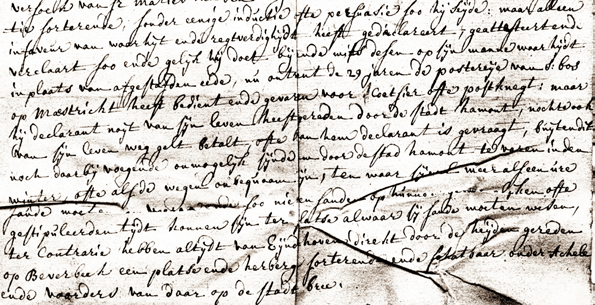 versoek van Sr
tie sorterende, sonder eenige inductie ofte persuasie soo hij seijde: maar alleen
in faveur van waerhijt ende regtverdighijdt heeft gedeclareert, geattesteert ende
verclaert soo ende gelijk hij doet bij ende mits desen op sijn manne waerhijdt
in plaets van afgestelden eede, nu ontrent de 29 jaren de posterije van S: bos
op Mæstricht heeft bedient ende gevaren voor Coetsier ofte postknegt: maar
hij declarant noyt van sijn leven heeft gereden door de stadt hamont, nochte ook
van sijn leven weg gelt betalt, ofte van hem declarant is gevraagt, buijten dit
noch daer bij voegende onmogelijk sijnde om door de stad hamont te varen in den
winter, ofte als de wegen onbequaem sijn, ten waer meer als een ure
sande soo nie en sanden op ofte
gestipuleerden tijdt konnen sijn ter plaetse alwaer sij sande moeten wesen,
ter Contrarie hebben altijdt van Eijndhoven direkt door de heijden gereden
op Beverbeeck een plaetse ende herberg sorterende ende onder Achele
ende voorders van daer op de stadt bree: